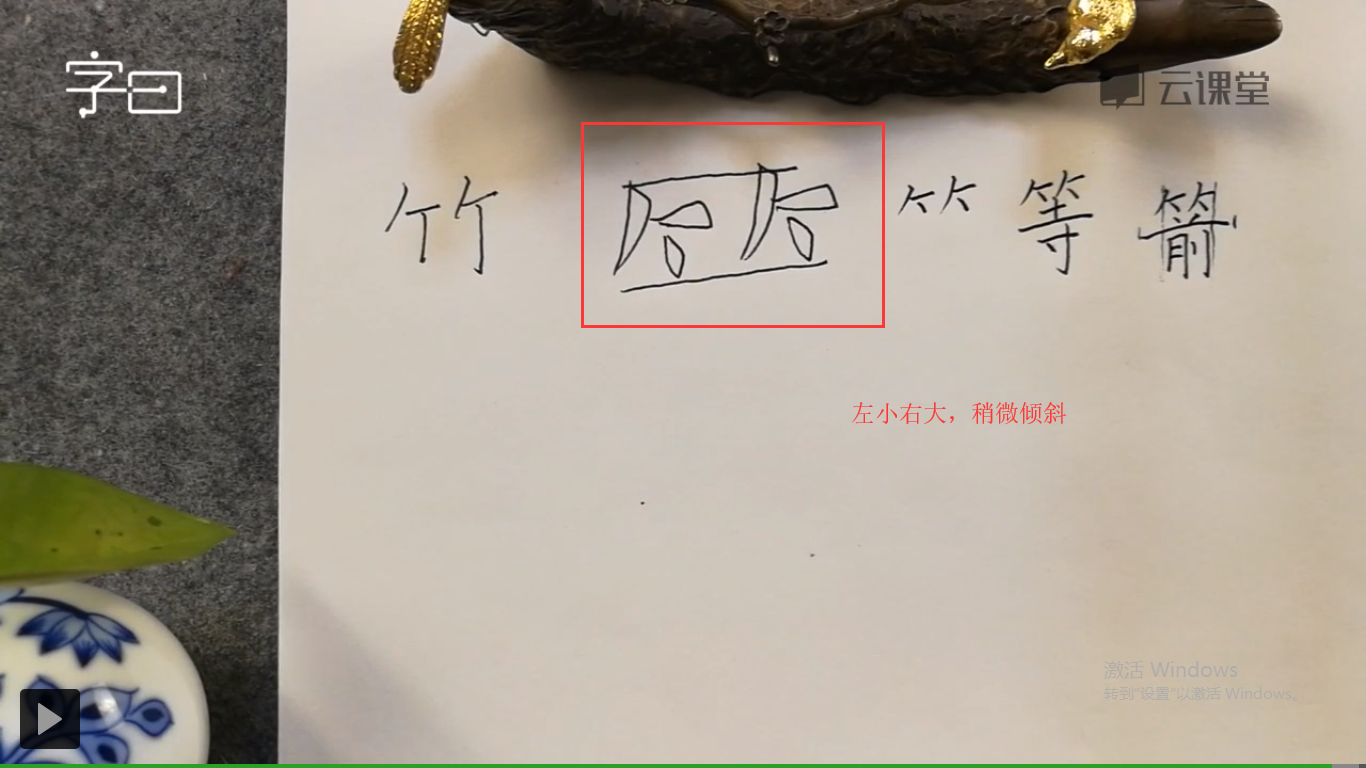 字曰
云课堂
竹 ⺮ 等 箭
左小右大，稍微倾斜
激活 Windows
转到"设置"以激活 Windows。